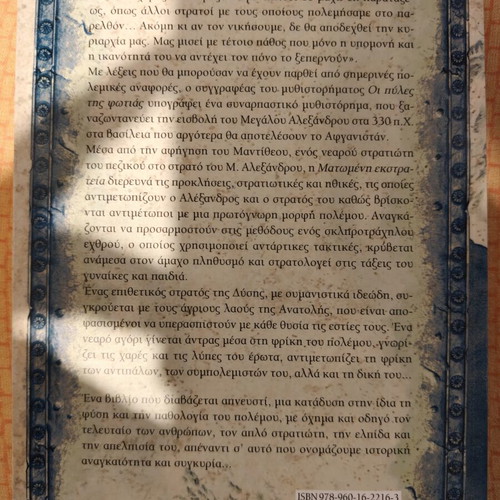 ως, όπως άλλοι στρατοί με τους οποίους πολεμήσαμε στο πα-
ρελθόν... Ακόμη κι αν τον νικήσουμε, δε θα αποδεχθεί την κυ-
ριαρχία μας. Μας μισεί με τέτοιο πάθος που μόνο η υπομονή και
η ικανότητά του να αντέχει τον πόνο το ξεπερνούν».
Με λέξεις που θα μπορούσαν να έχουν παρθεί από σημερινές πο-
λεμικές αναφορές, ο συγγραφέας του μυθιστορήματος Οι πύλες
της φωτιάς υπογράφει ένα συναρπαστικό μυθιστόρημα, που ξα-
ναζωντανεύει την εισβολή του Μεγάλου Αλεξάνδρου στα 330 π.Χ.
στα βασίλεια που αργότερα θα αποτελέσουν το Αφγανιστάν.
Μέσα από την αφήγηση του Μαντίθεου, ενός νεαρού στρατιώτη
του πεζικού στο στρατό του Μ. Αλεξάνδρου, η Ματωμένη εκστρα-
τεία διερευνά τις προκλήσεις, στρατιωτικές και ηθικές, τις οποίες
αντιμετωπίζουν ο Αλέξανδρος και ο στρατός του καθώς βρίσκο-
νται αντιμέτωποι με μια πρωτόγνωρη μορφή πολέμου. Αναγκά-
ζονται να προσαρμοστούν στις μεθόδους ενός σκληροτράχηλου
εχθρού, ο οποίος χρησιμοποιεί αντάρτικες τακτικές, κρύβεται
ανάμεσα στον άμαχο πληθυσμό και στρατολογεί στις τάξεις του
γυναίκες και παιδιά.
Ένας επιθετικός στρατός της Δύσης, με ουμανιστικά ιδεώδη, συ-
γκρούεται με τους άγριους λαούς της Ανατολής, που είναι απο-
φασισμένοι να υπερασπιστούν με κάθε θυσία τις εστίες τους. Ένα
νεαρό αγόρι γίνεται άντρας μέσα στη φρίκη του πολέμου, γνωρί-
ζει τις χαρές και τις λύπες του έρωτα, αντιμετωπίζει τη φρίκη
των αντιπάλων, των συμπολεμιστών του, αλλά και τη δική του...
Ένα βιβλίο που διαβάζεται απνευστί, μια κατάδυση στην ίδια τη
φύση και την παθολογία του πολέμου, με όχημα και οδηγό τον
τελευταίο των ανθρώπων, τον απλό στρατιώτη, την ελπίδα και
την απελπισία του, απέναντι σ' αυτό που ονομάζουμε ιστορική
αναγκαιότητα και συγκυρία...
ISBN 978-960-16-2216-3